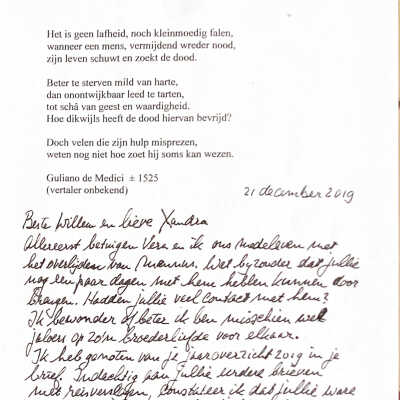 Het is geen lafheid, noch kleinmoedig falen,
wanneer een mens, vermijdend wreder nood,
zijn leven schuwt en zoekt de dood.
Beter te sterven mild van harte,
dan onontwijkbaar leed te tarten,
tot schâ van geest en waardigheid.
Hoe dikwijls heeft de dood hiervan bevrijd?
Doch velen die zijn hulp misprezen,
weten nog niet hoe zoet hij soms kan wezen.
Guliano de Medici ± 1525
(vertaler onbekend)
21 december 2019
Beste Willem en lieve Xandra
Allereerst betuigen Vera en ik ons medeleven met
het overlijden van Mennus. Wat byzonder dat jullie
nog een paar dagen met hem hebben kunnen door
brengen. Hadden jullie veel contact met hem?
Ik bewonder of beter ik ben misschien wel
jaloers op zo'n broederliefde voor elkaar.
Ik heb genoten van je jaaroverzicht 2019 in je
brief. Indachtig aan jullie eerdere brieven
met reisverslagen, constateer ik dat jullie ware